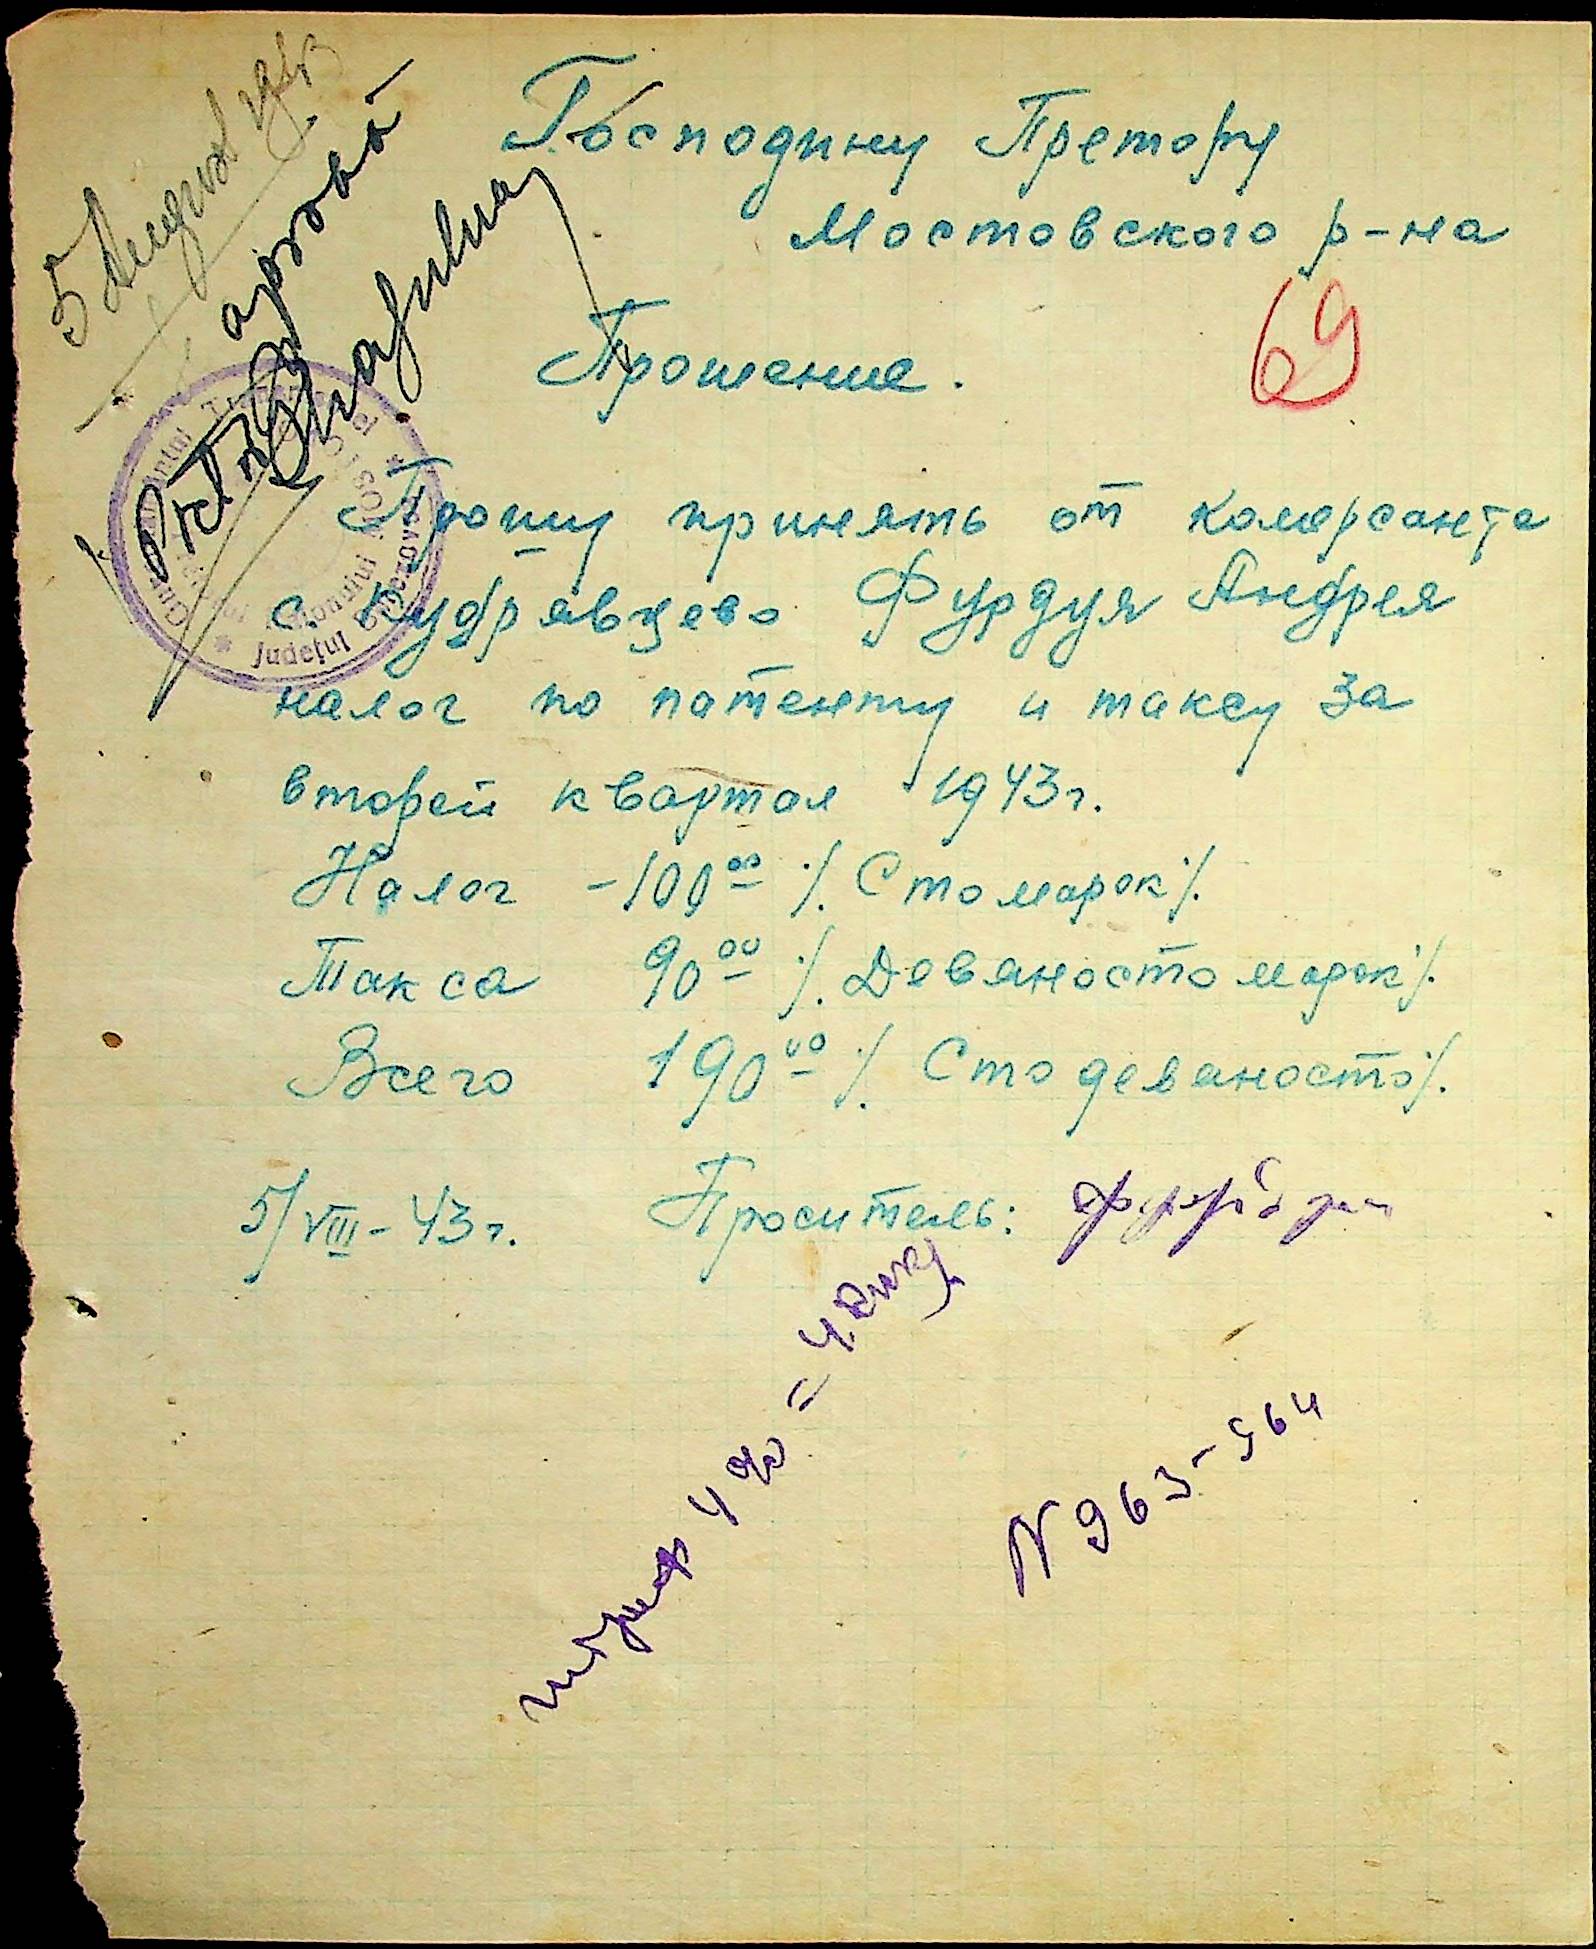 5 August 1943
Господину Претору
Мостовского р-на
69
Прошение.
Прошу принять от комерсанта
с. Кудрявцево Фурдуя Андрея
налог по патенту и таксу за
вторей квартал 1943г.
Налог -100 00 ./. Сто марок ./.
Такса 90 00 ./. Девяносто марок ./.
Всего 190 00 ./. Сто девяносто ./.
5/VIII-43г. Проситель:
штраф 4% = 4
N 963-964
Județul